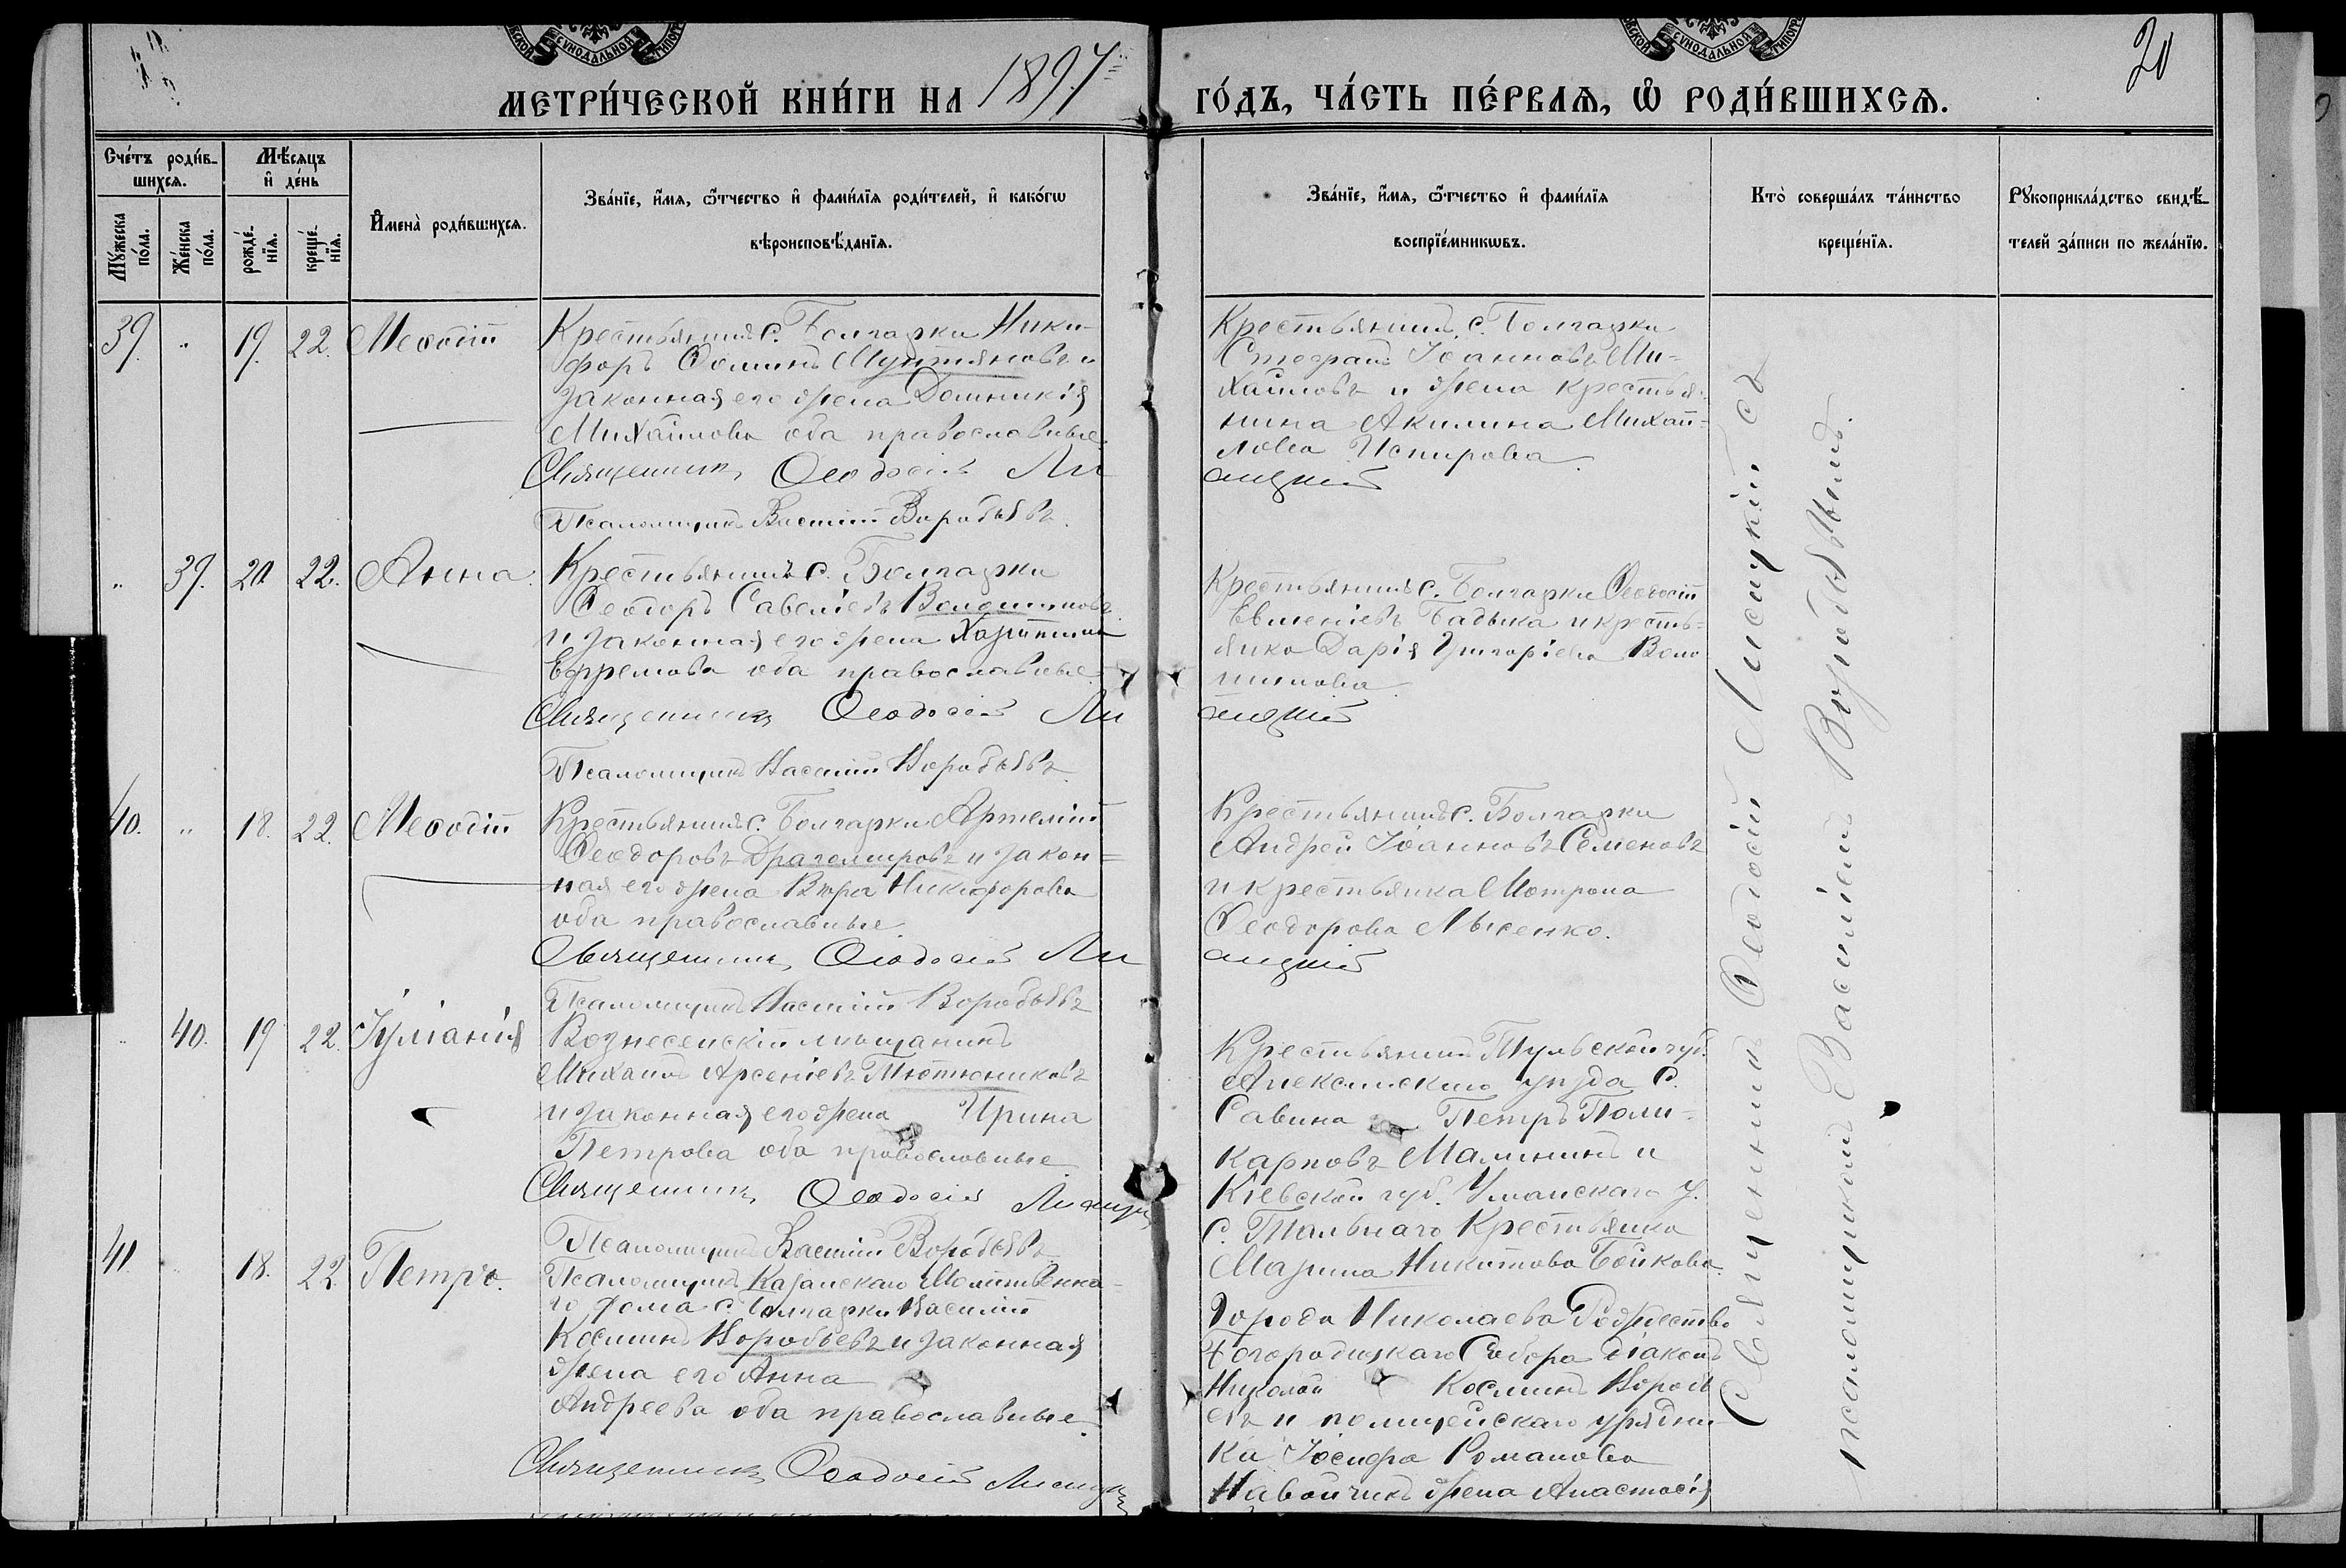 СѴНОДАЛЬНОЙ
СѴНОДАЛЬНОЙ
20
МЕТРИ́ЧЕСКОЙ КНИ́ГИ НА 1897 ГО́ДЪ, ЧА́СТЬ ПЕ́РВАѦ, Ѡ҆ РОДИ́ВШИХСѦ.
Сче́тъ роди́в-
шихсѧ.
Мꙋ́жеска по́ла.
Же́нска по́ла.
Мѣ́сѧцъ
и҆ де́нь
рожде́-нїѧ.
креще́-нїѧ.
И҆мена̀ роди́вшихсѧ.
Зва́нїе, и҆́мѧ, ѻ҆́тчество и҆ фами́лїѧ роди́телей, и҆ како́гѡ
вѣроисповѣ́данїѧ.
Зва́нїе, и҆́мѧ, ѻ҆́тчество и҆ фами́лїѧ
воспрїе́мникѡвъ.
Кто̀ соверша́лъ та́инство
креще́нїѧ.
Рꙋкоприкла́дство свидѣ́-
телей за́писи по жела́нїю.
39. " 19. 22. Меѳодій
Крестьянинъ с. Болгарки Ники-
форъ Ѳоминъ Мунтяновъ и
законная его жена Домникія
Михайлова оба православные.
Священникъ Ѳеодосій Ли
Псаломщикъ Василій Воробьевъ.
Крестьянинъ с. Болгарки
Стефанъ Іоанновъ Ми-
хайловъ и жена крестья-
нина Акилина Михай-
лова Испирова.
сицкій
" 39. 20. 22. Анна.
Крестьянинъ с. Болгарки
Ѳеодоръ Савеліевъ Волошиновъ
и законная его жена Харитина
Ефремова оба православные.
Священникъ Ѳеодосій Ли
Псаломщикъ Василій Воробьевъ.
Крестьянинъ с. Болгарки Ѳеодосій
Евменіевъ Бадыка и кресть-
янка Дарія Григоріева Воло
шинова.
сицкій
40. " 18. 22. Меѳодій
Крестьянинъ с. Болгарки Артемій
Ѳеодоровъ Драгомировъ и закон-
ная его жена Вѣра Никифорова
оба православные.
Священникъ Ѳеодосій Ли
Псаломщикъ Василій Воробьевъ
Крестьянинъ с. Болгарки
Андрей Іоанновъ Семеновъ
и крестьянка Мотрона
Ѳеодорова Лысенко.
сицкій
" 40. 19 22. Іуліанія
Вознесенскій мѣщанинъ
Михаилъ Арсеніевъ Тютюниковъ
и законная его жена Ирина
Петрова оба православные
Священникъ Ѳеодосій Лисицк
Псаломщикъ Василій Воробьевъ
Крестьянинъ Тульской губ.
Алексинскаго уѣзда с.
Савина Петръ Поли-
карповъ Малининъ и
Кіевской губ. Уманскаго у.
с. Тальнаго Крестьянка
Марина Никитова Бойкова.
41 18. 22. Петръ.
Псаломщикъ Казанскаго Молитвенна-
го дома с. Болгарки Василій
Косминъ Воробьевъ и законная
жена его Анна
Андреева оба православные.
Священникъ Ѳеодосій Лисицк
Города Николаева Рождество
Богородицкаго Собора діаконъ
Николай Косминъ Вороб
евъ и полицейскаго урядни
ка Іосифа Романова
Навойчикъ жена Анастасія
Священникъ Ѳеодосій Лисицкій съ
псаломщикомъ Василіемъ Воробьевымъ.